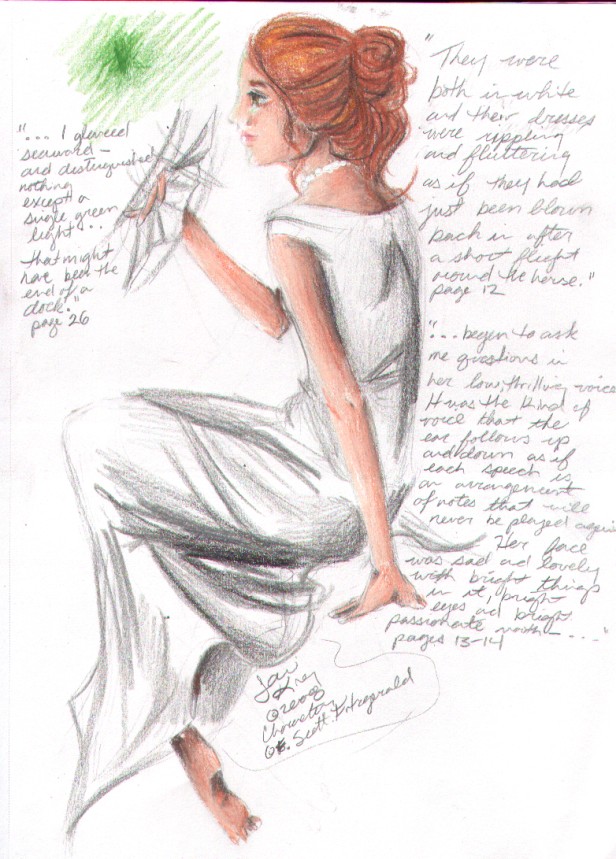 "They were
both in white
and their dresses
were rippling
and fluttering
as if they had
just been blown
back in after
a short flight
around the house."
page 12
"... I glanced
seaward –
and distinguished
nothing
except a
single green
light...
that might
have been the
end of a
dock."
page 26
"... began to ask
me questions in
her low, thrilling voice
It was the kind of
voice that the
ear follows up
and down as if
each speech is
an arrangement
of notes that will
never be played again
Her face
was sad and lovely
with bright things
in it, bright
eyes ad bright
passionate mouth – ..."
pages 13-14
©2008
© F. Scott Fitzgerald